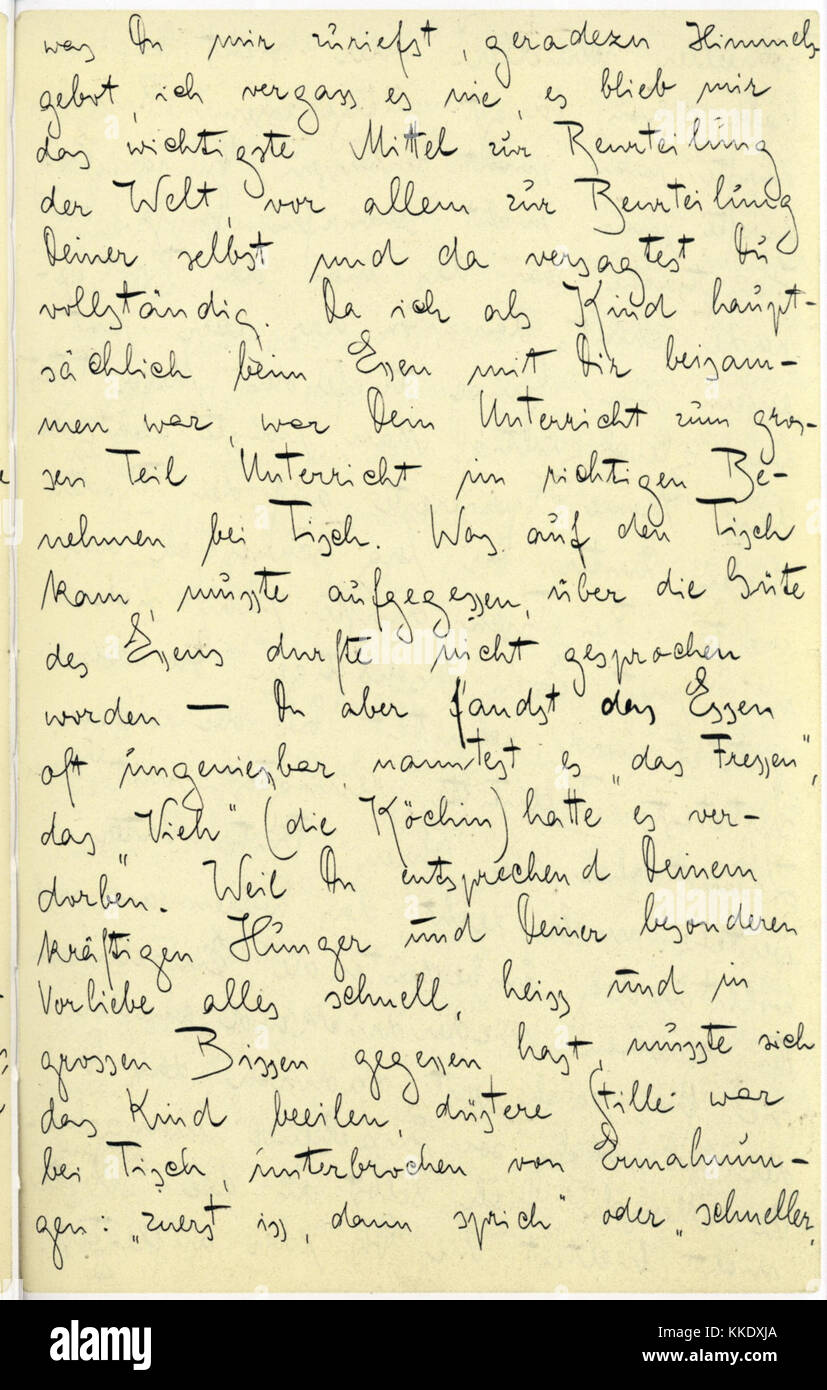 was Du mir zuriefst, geradezu Himmels-
gebot, ich vergass es nie, es blieb mir
das wichtigste Mittel zur Beurteilung
der Welt, vor allem zur Beurteilung
Deiner selbst und da versagtest Du
vollständig. Da ich als Kind haupt-
sächlich beim Essen mit Dir beisam-
men war, war Dein Unterricht zum gros-
sen Teil Unterricht im richtigen Be-
nehmen bei Tisch. Was auf den Tisch
kam, musste aufgegessen, über die Güte
des Essens durfte nicht gesprochen
werden — Du aber fandst das Essen
oft ungeniessbar, nanntest es „das Fressen",
das „Vieh" (die Köchin) hatte es ver-
dorben. Weil Du entsprechend Deinem
kräftigen Hunger und Deiner besonderen
Vorliebe alles schnell, heiss und in
grossen Bissen gegessen hast, musste sich
das Kind beeilen, düstere Stille war
bei Tisch, unterbrochen von Ermahnun-
gen: „zuerst iss, dann sprich" oder „schneller,
alamy
Image ID: KKDXJA
www.alamy.com